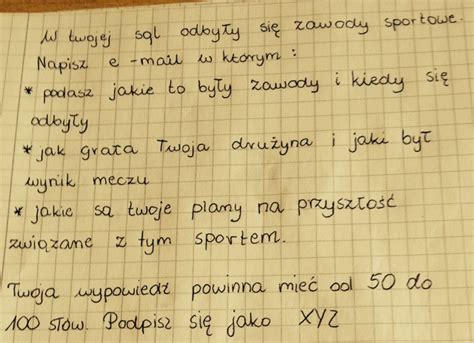 W twojej sql odbyły się zawody sportowe.
Napisz e-mail w którym:
* podasz jakie to były zawody i kiedy się
odbyły
* jak grała Twoja drużyna i jaki był
wynik meczu
* jakie są twoje plany na przyszłość
związane z tym sportem.
Twoja wypowiedź powinna mieć od 50 do
100 słów. Podpisz się jako XYZ